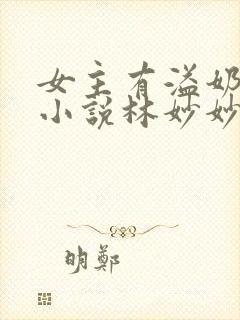 女主有溢奶
小說林妙妙
明鄭